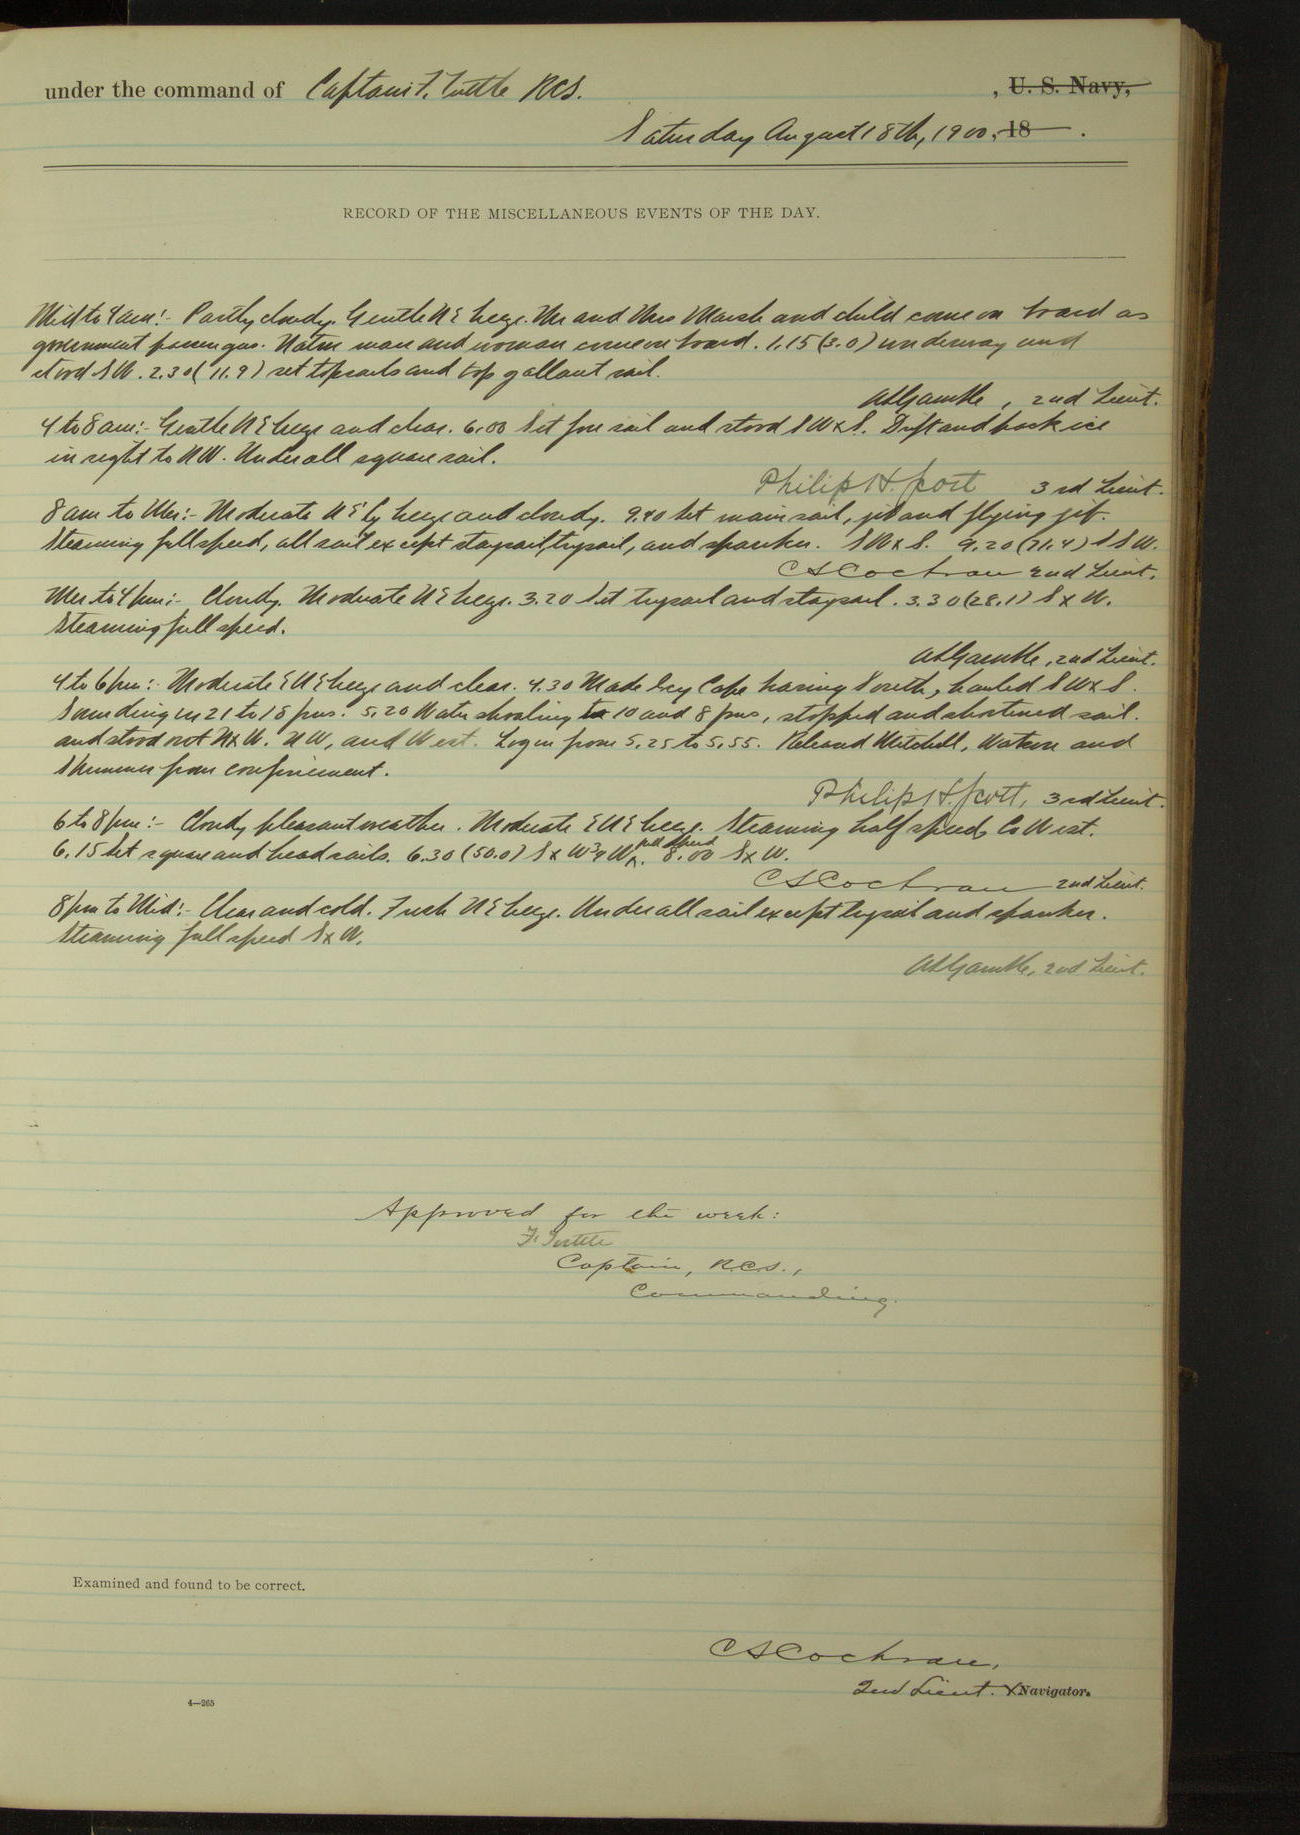 under the command of Captain F. Tuttle RCS. , U. S. Navy,
Saturday August 18th, 1900, 18 .
RECORD OF THE MISCELLANEOUS EVENTS OF THE DAY.
Mid to 4 am:- Partly cloudy. Gentle NE breeze. Mr and Mrs Marsh and child came on board as
government passengers. Native man and woman came on board. 1.15 (3.0) underway and
stood SW. 2.30 (11.9) set topsails and top gallant sail.
, 2nd Lieut.
4 to 8 am:- Gentle NE breeze and clear. 6.00 Set fore sail and stood SWxS. Drift and pack ice
in sight to NW. Under all square sail.
Philip H. Scott 3rd Lieut.
8 am to Mer:- Moderate NE'ly breeze and cloudy. 9.40 Set main sail, jib and flying jib.
Steaming full speed, all sail except staysail, trysail, and spanker. SWxS. 9.20 (71.4) SSW.
C S Cochran 2nd Lieut.
Mer to 4 pm:- Cloudy. Moderate NE breeze. 3.20 Set trysail and staysail. 3.30 (28.1) SxW.
Steaming full speed.
, 2nd Lieut.
4 to 6 pm:- Moderate ENE breeze and clear. 4.30 Made Icy Cape bearing South, hauled SWxS.
Sounding in 21 to 18 fms. 5.20 Water shoaling to 10 and 8 fms, stopped and shortened sail.
and stood out NxW. NW, and West. Log in from 5.25 to 5.55. Released Mitchell, Watson and
from confinement.
Philip H. Scott, 3rd Lieut.
6 to 8 pm:- Cloudy pleasant weather. Moderate ENE breeze. Steaming half speed, Co West.
6.15 Set square and head sails. 6.30 (50.0) SxW¾W full speed. 8.00 SxW.
C S Cochran 2nd Lieut.
8 pm to Mid:- Clear and cold. Fresh NE breeze. Under all sail except trysail and spanker.
Steaming full speed SxW.
, 2nd Lieut.
Approved for the week:
F. Tuttle
Captain, R.C.S.,
Commanding.
Examined and found to be correct.
C S Cochran,
2nd Lieut. & Navigator.
4—265